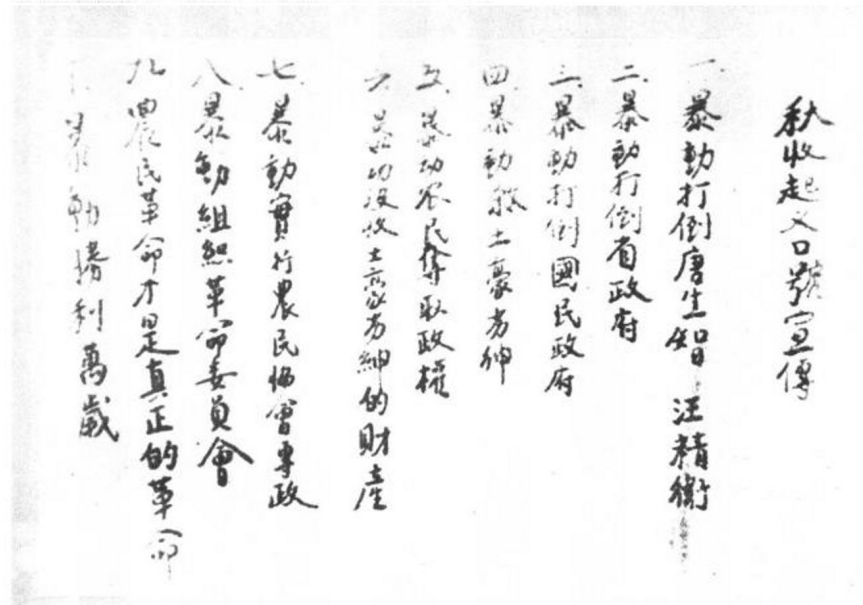 秋收起义口號宣傳
一、暴動打倒唐生智 汪精衛
二、暴動打倒省政府
三、暴動打倒國民政府
四、暴動殺土豪劣紳
五、暴动农民奪取政權
六、暴动没收土豪劣紳的財產
七、暴動實行農民協會專政
八、暴動組織革命委員會
九、農民革命才是真正的革命
暴動勝利萬歲